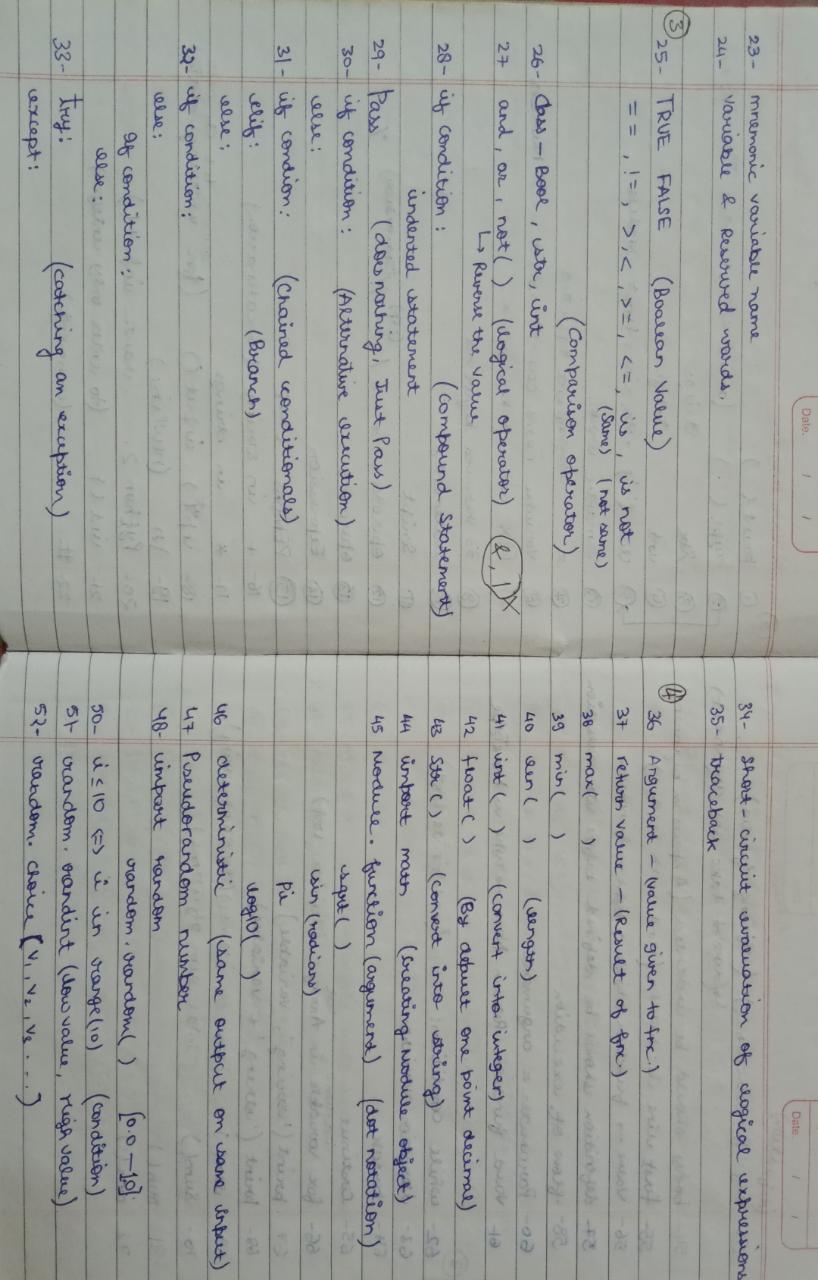 Date. / /
23- mnemonic variable name
24- variable & Reserved words.
3
25- TRUE FALSE (Boolean Value)
==, !=, >, <, >=, <=, is, is not
(same) (not same)
(Comparison operator)
26- Class - Bool, str, int
27 and, or, not( ) (logical operator) &, | X
↳ Reverse the value
28- if condition: (Compound Statement)
indented statement
29- Pass (does nothing, Just Pass)
30- if condition: (Alternative execution)
else:
31- if condion: (Chained conditionals)
elif: (Branch)
else:
32- if condition:
else:
if condition:
else:
33- try: (catching an exception)
except:
Date / /
34- short-circuit evaluation of logical expressions
35- traceback
4
36 Argument - (value given to fnc.)
37 return value - (Result of fnc.)
38 max( )
39 min( )
40 len( ) (length)
41 int( ) (convert into integer)
42 float( ) (By default one point decimal)
43 Str( ) (convert into string)
44 import math (creating Module object)
45 Module.function(argument) (dot notation)
sqrt( )
sin(radians)
pi
log10( )
46 deterministic (same output on same input)
47 Pseudorandom number
48- import random
random.random( ) [0.0-1.0]
50- i≤10 <=> i in range(10) (condition)
51- random.randint(low value, High value)
52- random.choice[V1, V2, V3 ...)